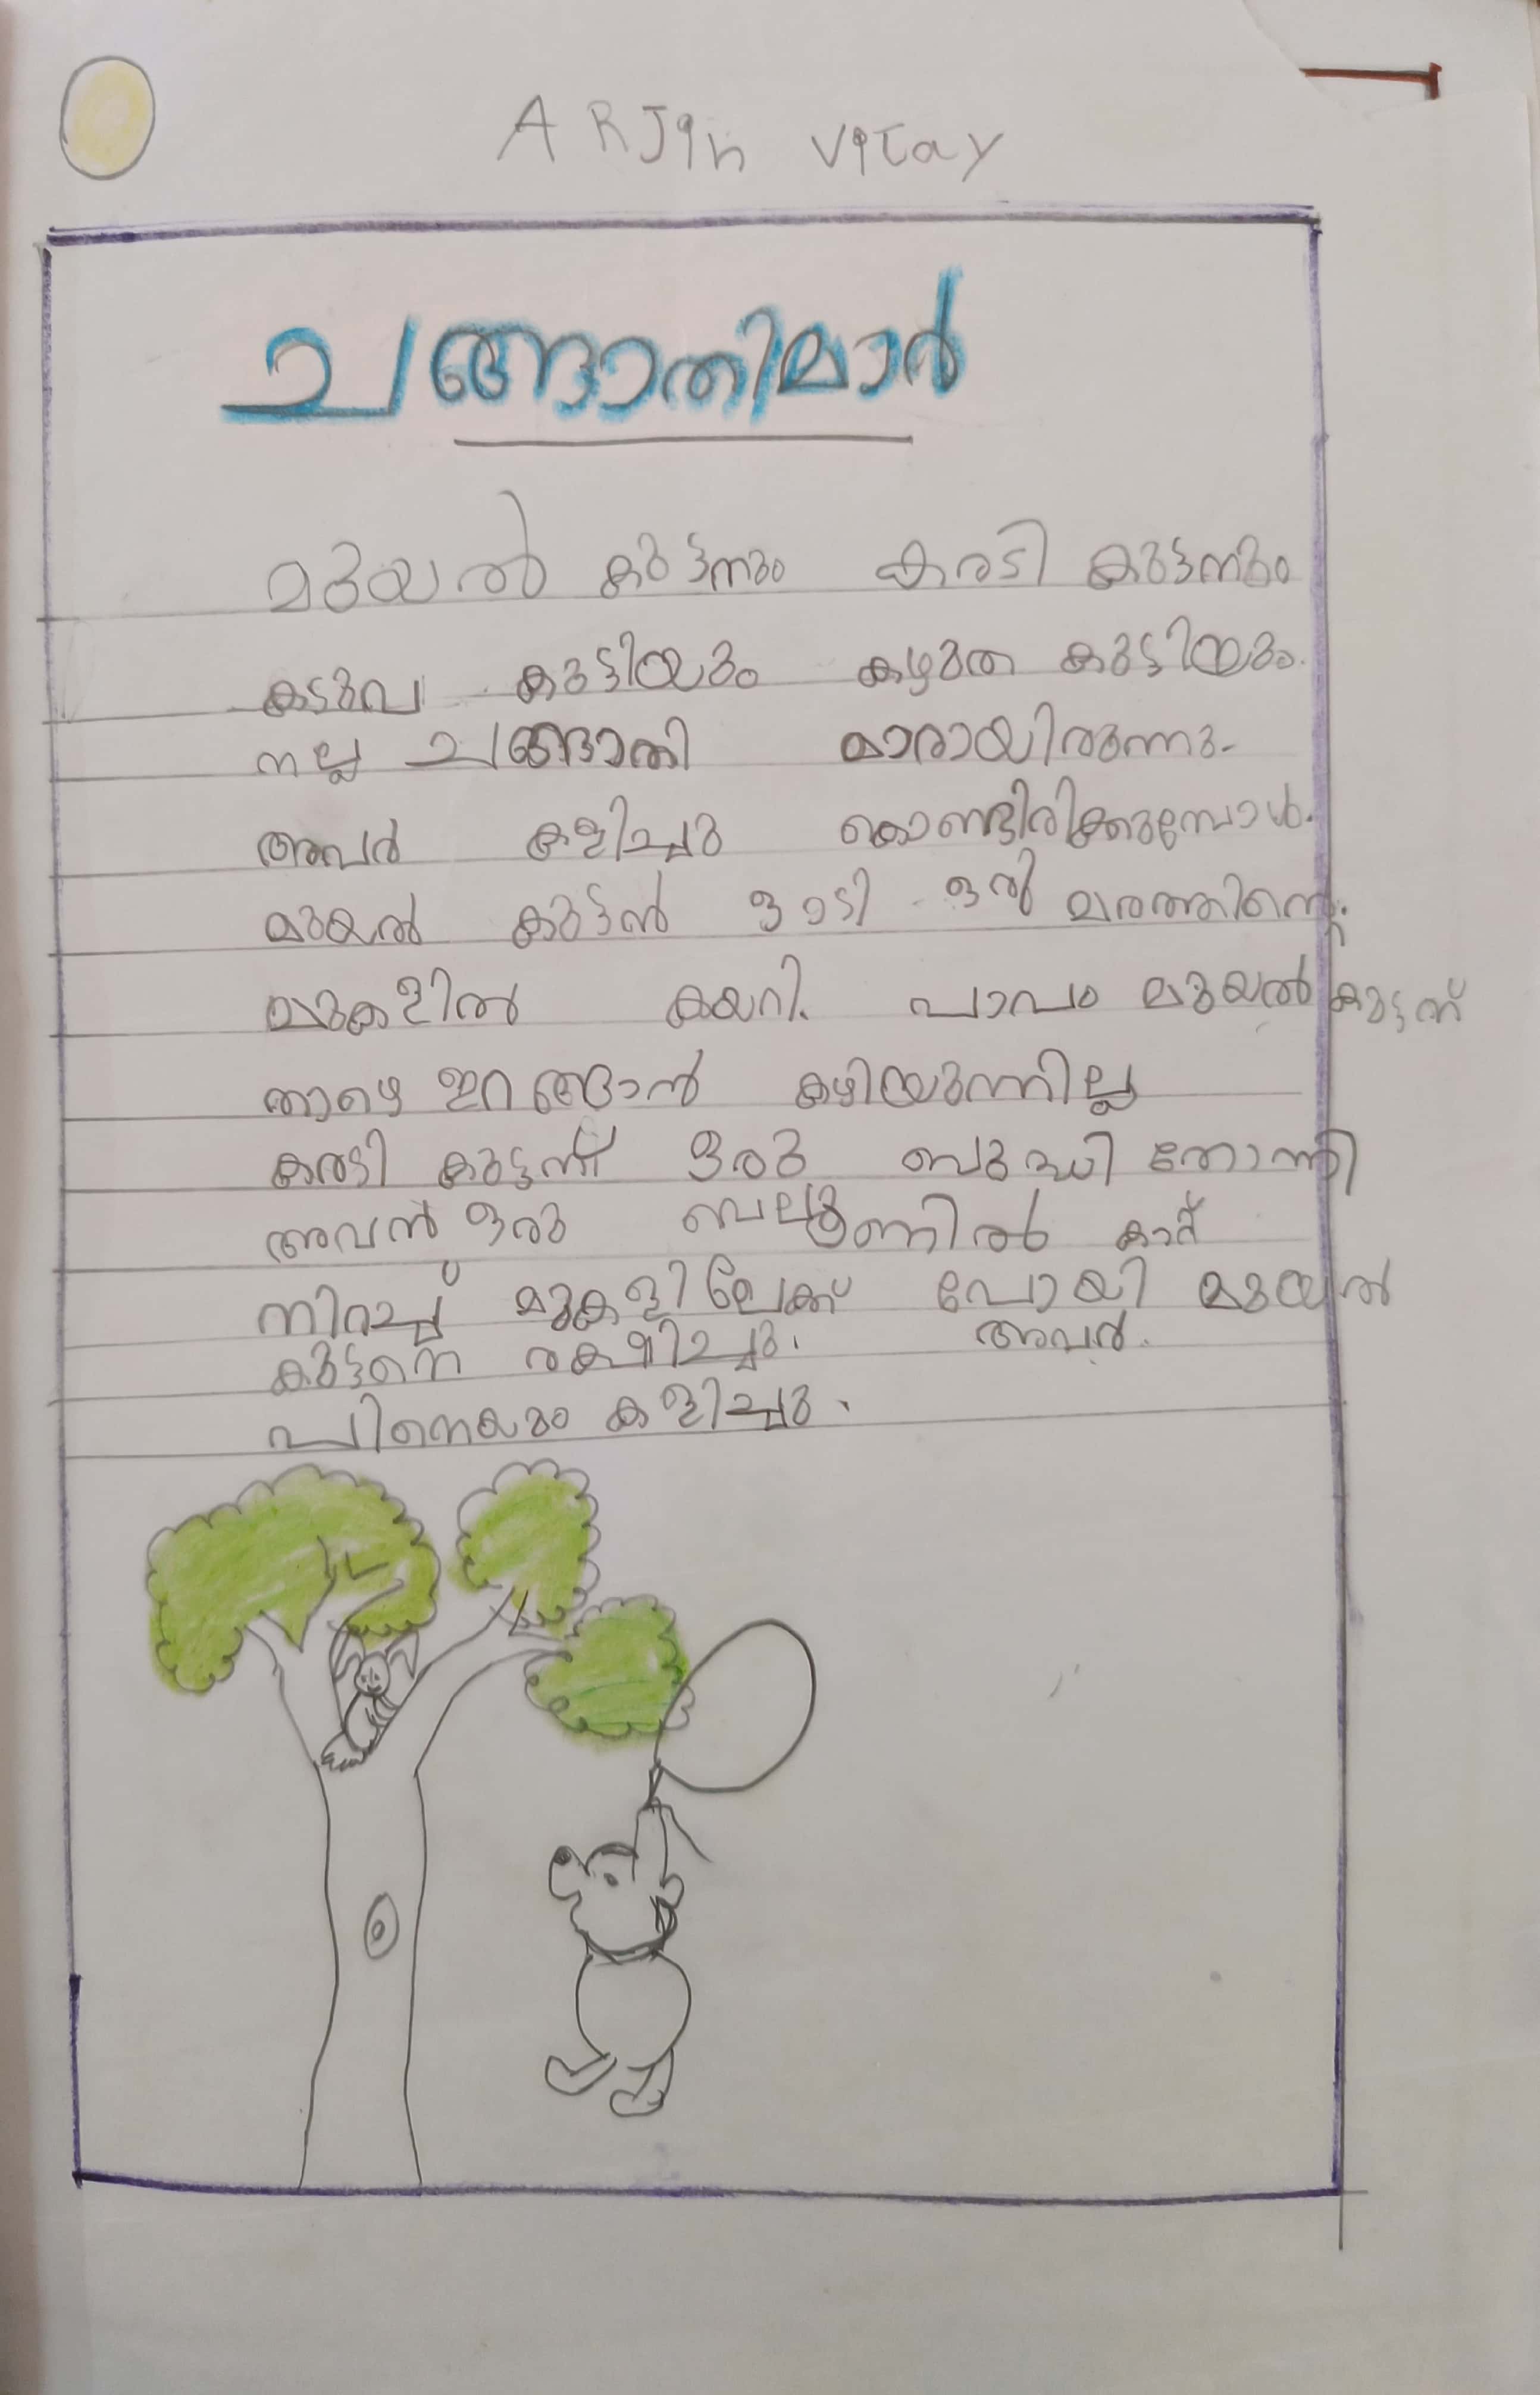 ARJin ViJay
ചങ്ങാതിമാർ
മുയൽ കുട്ടനും കരടി കുട്ടനും
കടുവ കുട്ടിയും കഴുത കുട്ടിയും
നല്ല ചങ്ങാതി മാരായിരുന്നു.
അവർ കളിച്ചു കൊണ്ടിരിക്കുമ്പോൾ.
മുയൽ കുട്ടൻ ഓടി ഒരു മരത്തിന്റെ.
മുകളിൽ കയറി. പാവം മുയൽ കുട്ടന്
താഴെ ഇറങ്ങാൻ കഴിയുന്നില്ല
കരടി കുട്ടന് ഒരു ബുദ്ധി തോന്നി
അവൻ ഒരു ബലൂണിൽ കാറ്റ്
നിറച്ച് മുകളിലേക്ക് പോയി മുയൽ
കുട്ടനെ രക്ഷിച്ചു. അവർ.
പിന്നെയും കളിച്ചു.